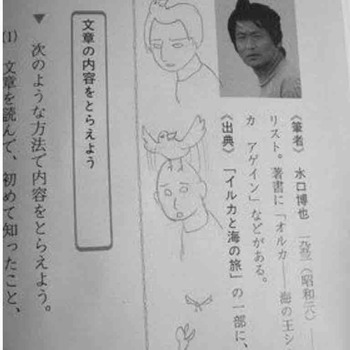 《筆者》 水口博也 (昭和
リスト。著書に「オルカ――海の王シ
カ アゲイン」などがある。
《出典》「イルカと海の旅」の一部に、
文章の内容をとらえよう
▼ 次のような方法で内容をとらえよう。
(1) 文章を読んで、初めて知ったこと、